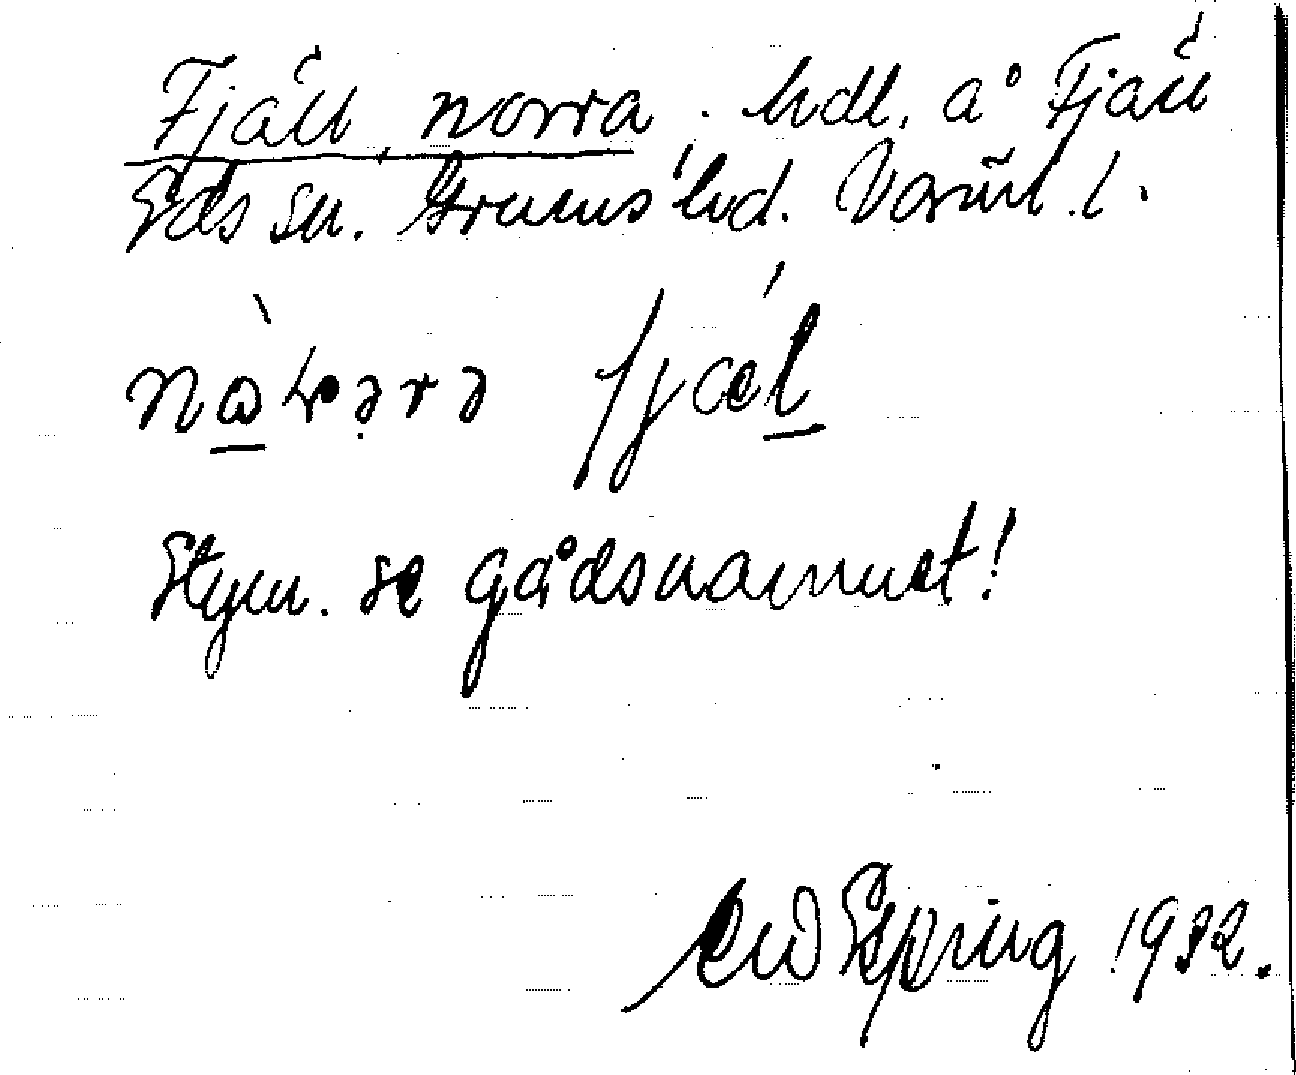 Fjäll, norra. hdl. å Fjäll
Eds sn. Grums hd. Värml. l.
fjæl
Etym. se gårdsnamnet!
Epring 1932.